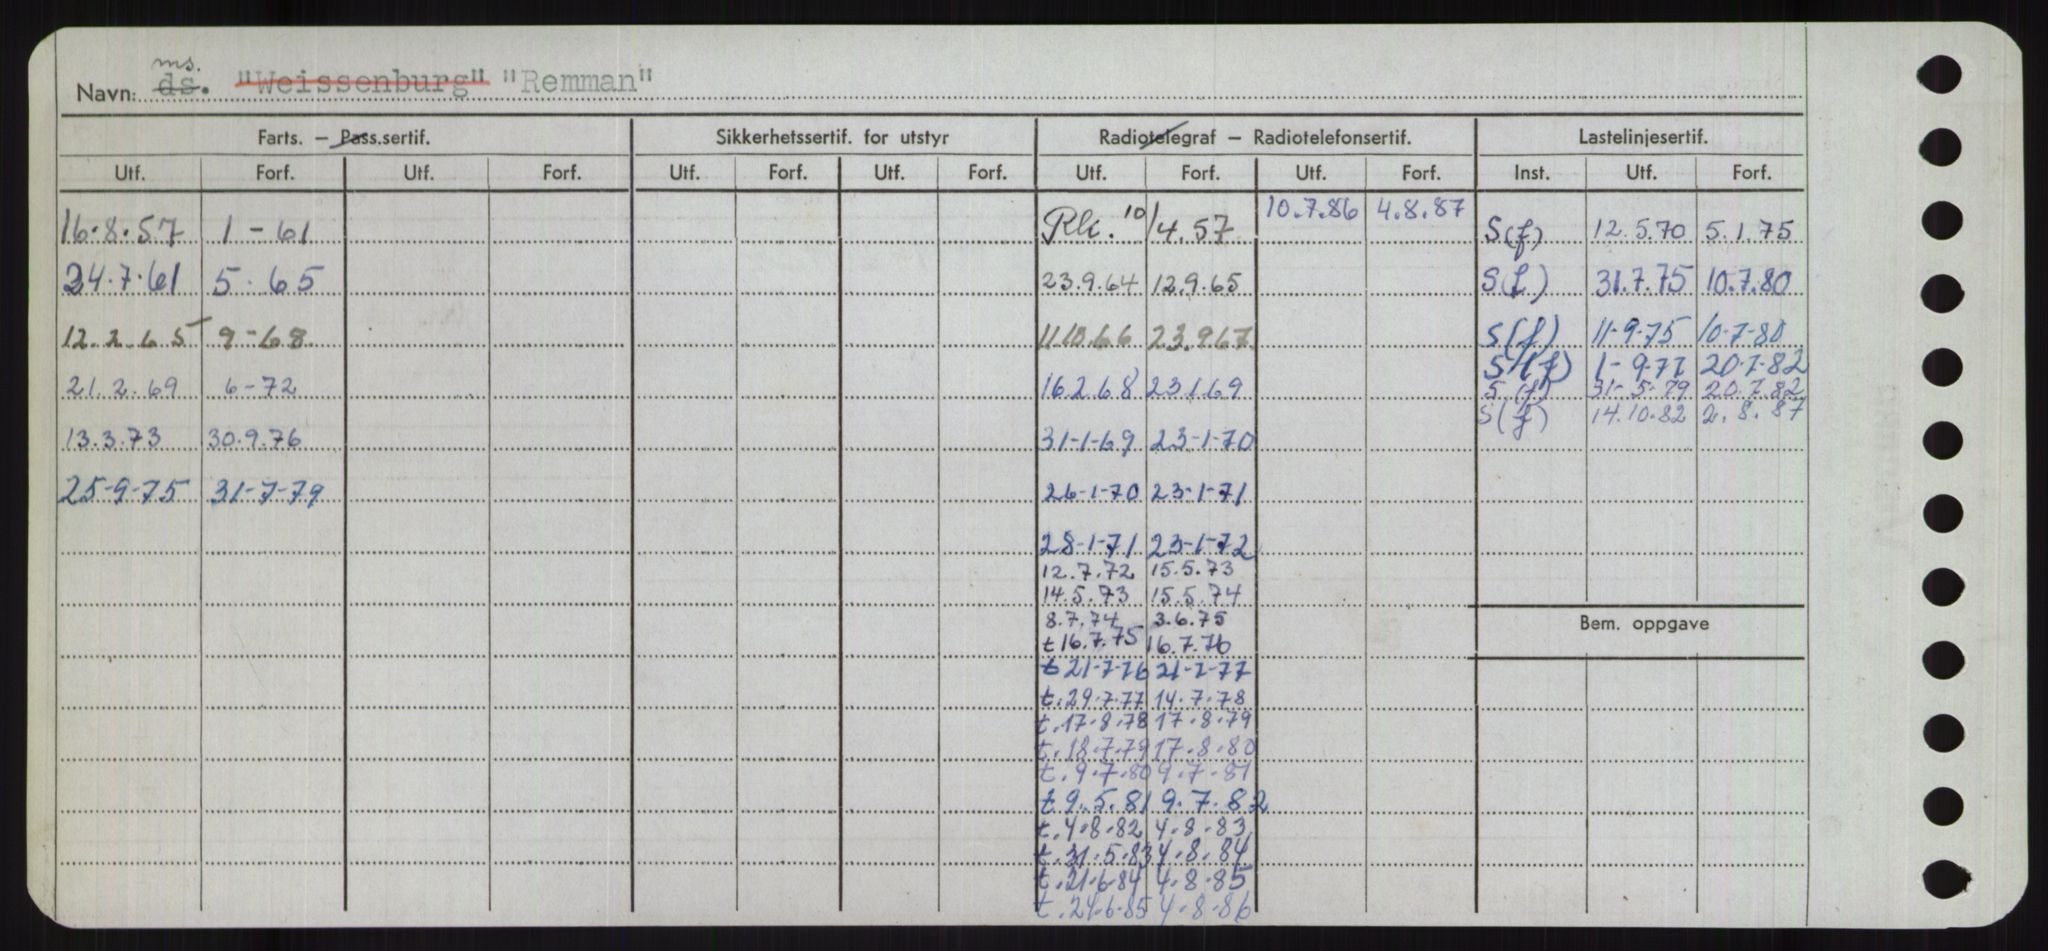 ms.
Navn: ds. "Weissenburg" "Remman"
Farts. – Pass.sertif. Sikkerhetssertif. for utstyr Radiotelegraf – Radiotelefonsertif. Lastelinjesertif.
Utf. Forf. Utf. Forf. Utf. Forf. Utf. Forf. Utf. Forf. Utf. Forf. Inst. Utf. Forf.
16.8.57 1-61 10/4.57 10.7.86 4.8.87 S(f) 12.5.70 5.1.75
24.7.61 5.65 23.9.64 12.9.65 S(f) 31.7.75 10.7.80
12.2.65 9-68 11.10.66 23.9.67 S(f) 11-9-75 10-7-80
S(f) 1-9-77 20-7-82
21.2.69 6-72 16.2.68 23.1.69 S(f) 31-5-79 20.7.82
S(f) 14.10.82 2.8.87
13.3.73 30.9.76 31-1-69 23-1-70
25-9-75 31-7-79 26-1-70 23-1-71
28-1-71 23-1-72
12.7.72 15.5.73
14.5.73 15.5.74
8.7.74 3.6.75
Bem. oppgave
t 16.7.75 16.7.76
t 21-7-76 21-7-77
t.29.7.77 14.7.78
t.17.8.78 17.8.79
t.18.7.79 17.8.80
t.9.7.80 9.7.81
t 9.5.81 9.7.82
t.4.8.82 4.8.83
t.31.5.83 4.8.84
t.21.6.84 4.8.85
t.24.6.85 4.8.86